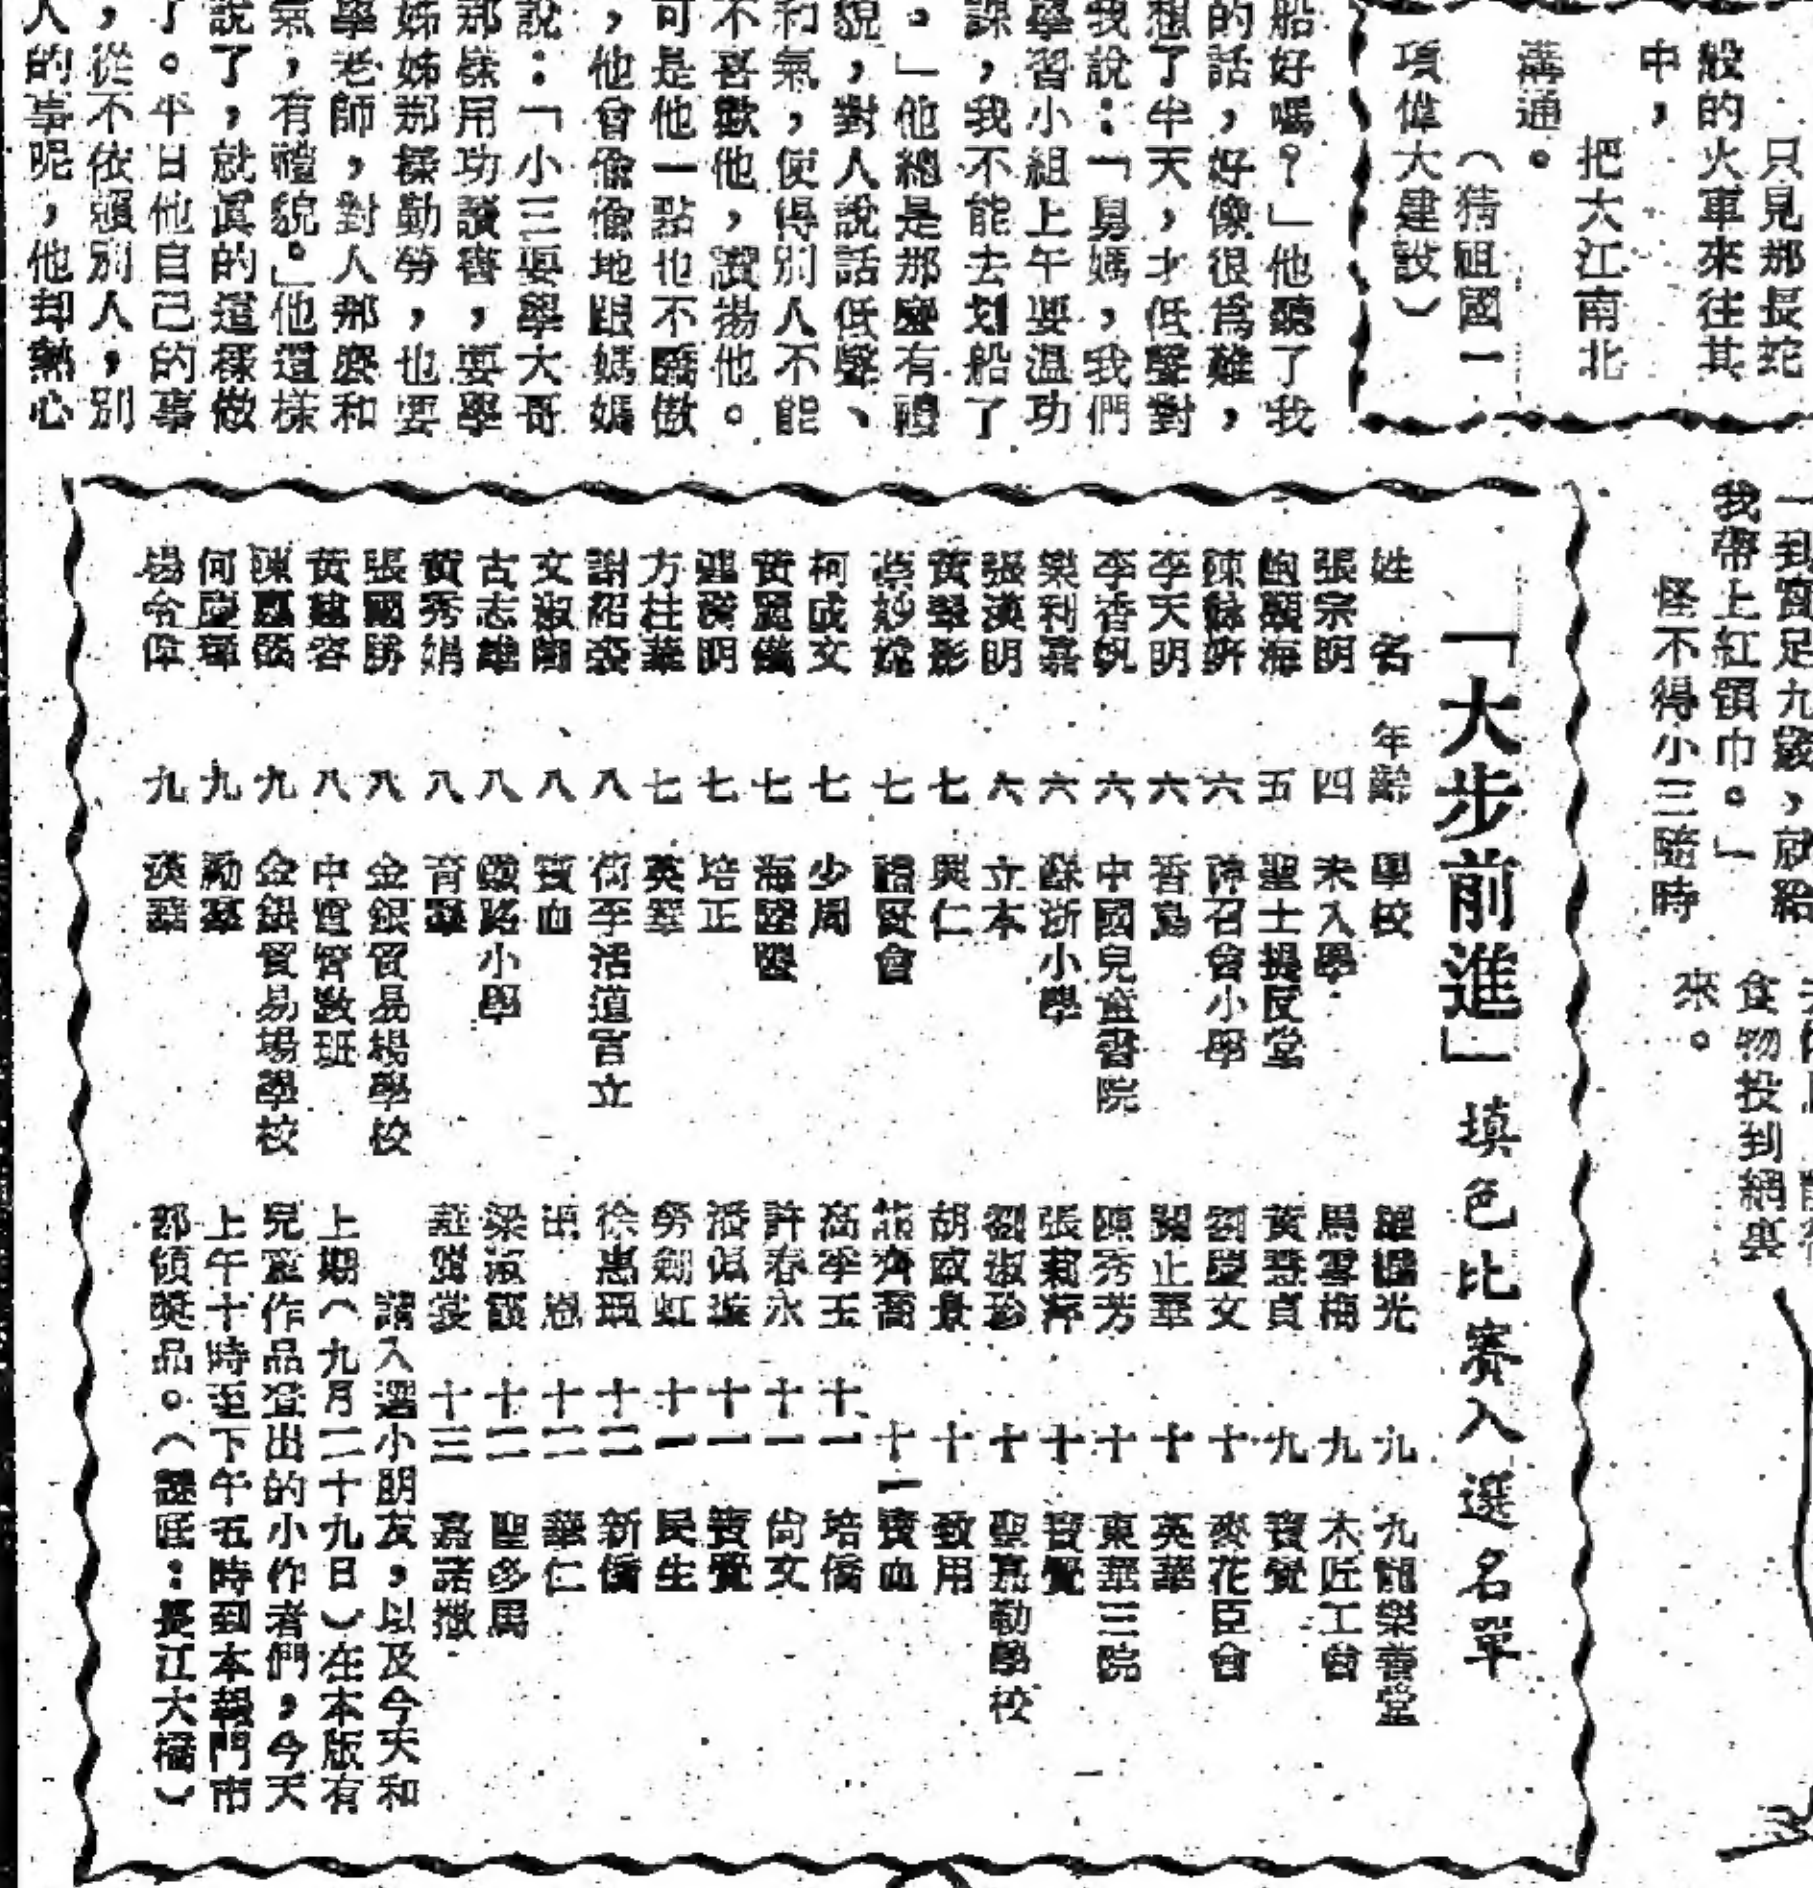 只見那長蛇
般的火車來往其
中，
把大江南北
溝通。
（猜祖國一
項偉大建設）
船好嗎？」他聽了我
的話，好像很爲難，
想了半天，才低聲對
我說：「舅媽，我們
學習小組上午要温功
課，我不能去划船了
。」他總是那麼有禮
貌，對人說話低聲、
和氣，使得別人不能
不喜歡他，讚揚他。
可是他一點也不驕傲
，他會偷偷地跟媽媽
說：「小三要學大哥
那樣用功讀書，要學
姊姊那樣勤勞，也要
學老師，對人那麽和
氣，有禮貌。」他這樣
說了，就眞的這樣做
了。平日他自己的事
，從不依賴別人，別
人的事呢，他却熱心
一到實足九歲，就給
我帶上紅領巾。」
怪不得小三臨時
食物投到網裏
來。
「大步前進」填色比賽入選名單
姓名 年齡 學校
張宗明 四 未入學
鮑顯海 五 聖士提反堂
陳詠妍 六 神召會小學
李天明 六 香島
李香帆 六 中國兒童書院
樂利嘉 六 蘇浙小學
張漢明 六 立本
黃翠影 七 興仁
蔡妙 七 禮賢會
柯成文 七 少周
黃麗儀 七 海陸豐
明 七 培正
方桂華 七 英華
謝紹 八 街李活道官立
文淑 八 寶血
古志雄 八 鐵路小學
黃秀娟 八 育華
張國勝 八 金銀貿易場學校
黃建容 八 中電習數班
陳 九 金銀貿易場學校
何慶 九 勵羣
偉 九 漢華
光 九 九龍樂善堂
馬雪梅 九 木匠工會
黃慧貞 九 寶覺
劉慶文 十 麥花臣會
關止華 十 英華
陳秀芳 十 東華三院
張莉萍 十 寶覺
劉淑珍 十 聖嘉勒學校
胡成景 十 致用
熊齊喬 十一 寶血
高季玉 十一 培僑
許春永 十一 尙文
潘佩 十一 寶覺
勞劍虹 十一 民生
徐惠 十二 新僑
恩 十二 華仁
梁淑 十二 聖多馬
十三 嘉諾撒
請入選小朋友，以及今天和
上期（九月二十九日）在本版有
兒童作品登出的小作者們，今天
上午十時至下午五時到本報門市
部領獎品。（謎底：長江大橋）